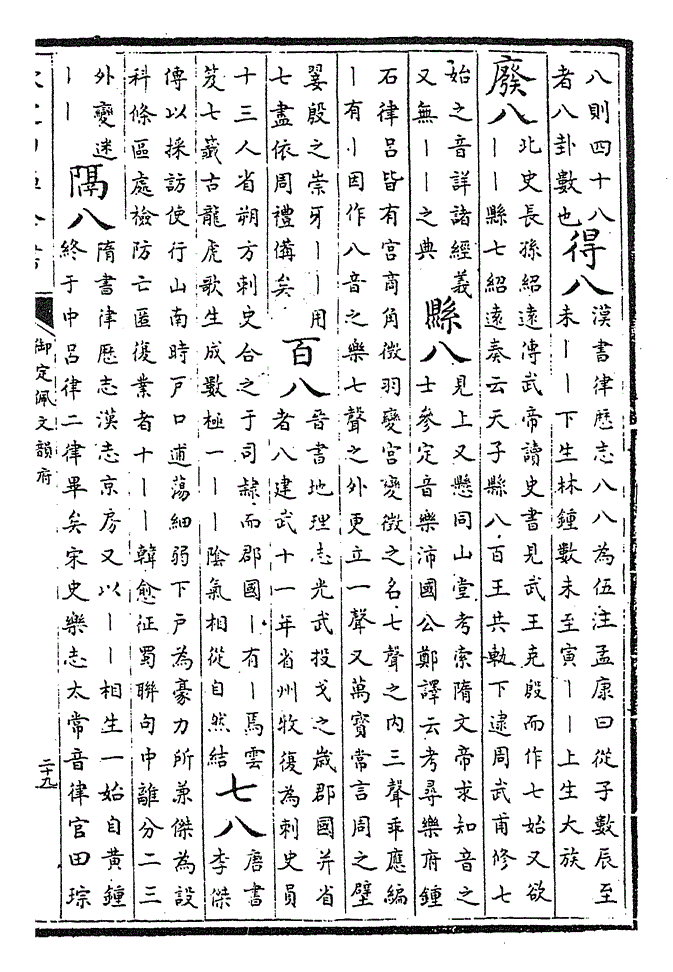 八則四十八
者八卦數也
得八
漢書律歷志八八為伍注孟康曰從子數辰至
未丨丨下生林鍾數未至寅丨丨上生大族
廢八
北史長孫紹遠傳武帝讀史書見武王克殷而作七始又欲
丨丨縣七紹遠奏云天子縣八百王共軌下逮周武甫修七
始之音詳諸經義
又無丨丨之典
縣八
見上又懸同山堂考索隋文帝求知音之
士參定音樂沛國公鄭譯云考尋樂府鍾
石律呂皆有宮商角徵羽變宮變徵之名七聲之內三聲乖應編
丨有丨因作八音之樂七聲之外更立一聲又萬寳常言周之璧
翣殷之崇牙丨丨用
七盡依周禮備矣
百八
晉書地理志光武投戈之歲郡國并省
者八建武十一年省州牧復為刺史員
十三人省朔方刺史合之于司隸而郡國丨有丨馬雲
笈七籖古龍虎歌生成數極一丨丨陰氣相從自然結
七八
唐書
李傑
傳以採訪使行山南時戶口逋蕩細弱下戶為豪力所兼傑為設
科條區處檢防亡匿復業者十丨丨韓愈征蜀聨句中離分二三
外變迷
丨丨
隅八
隋書律歷志漢志京房又以丨丨相生一始自黃鍾
終于中呂律二律畢矣宋史樂志太常音律官田琮
御定佩文韻府
二十九